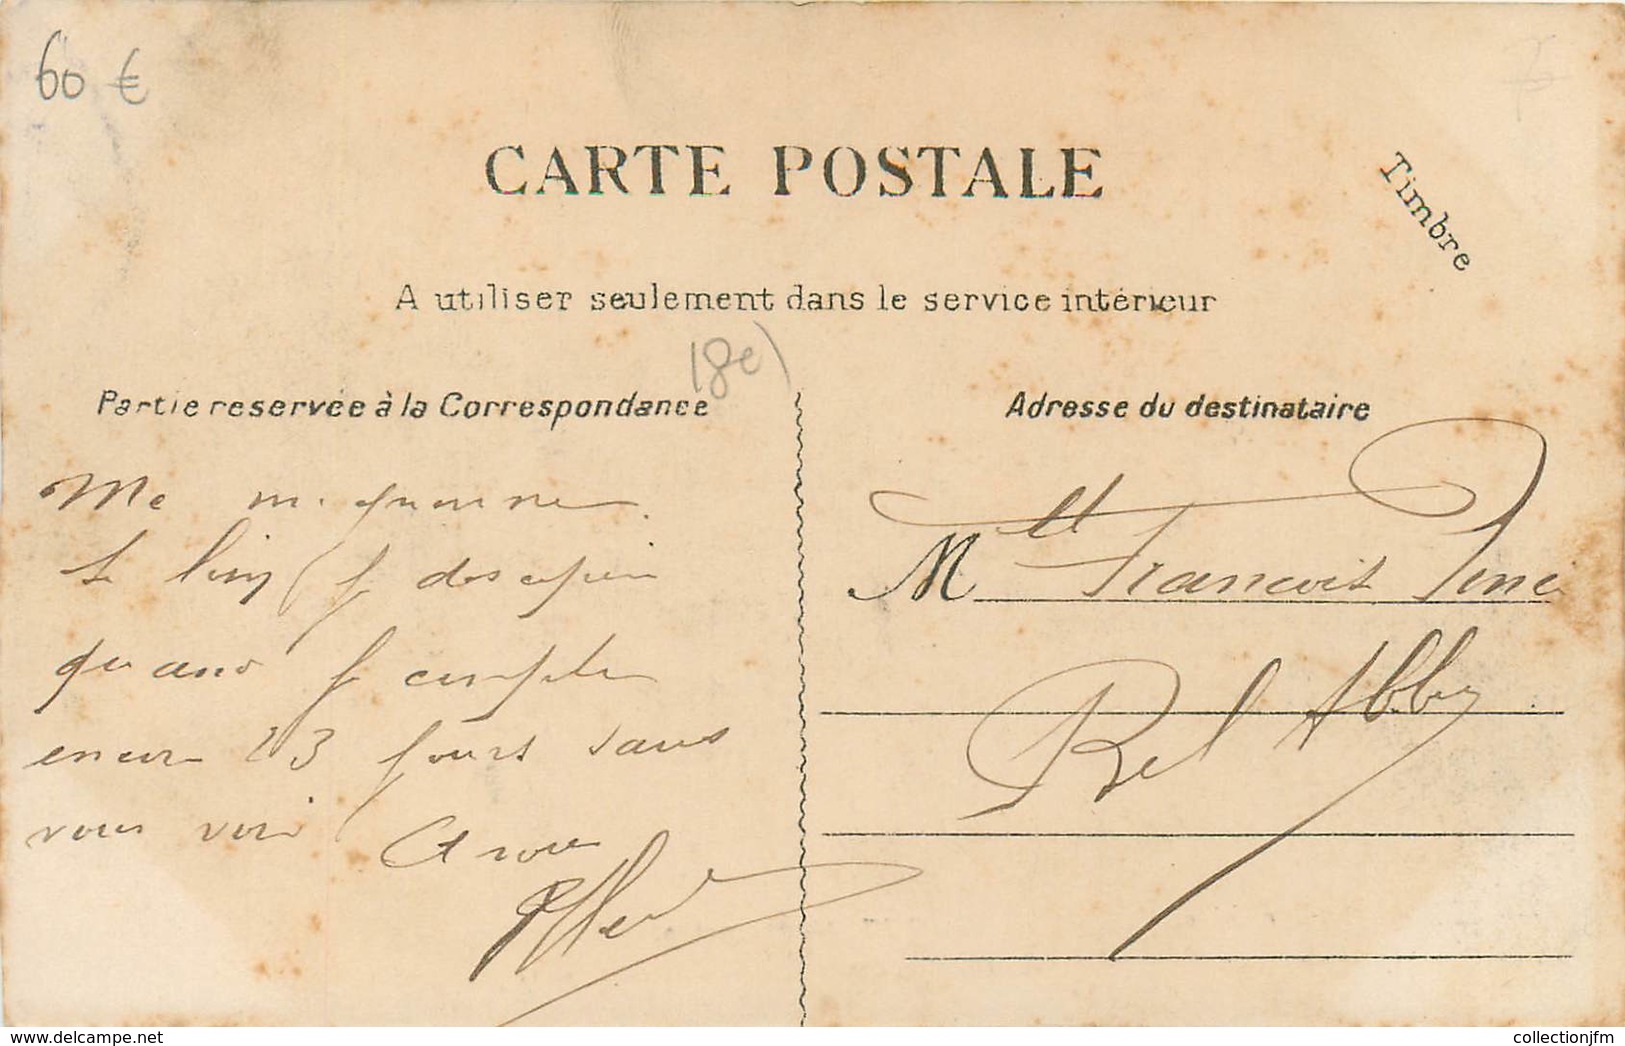 60 €
CARTE POSTALE
Timbre
A utiliser seulement dans le service intérieur
18e)
Partie reservée à la Correspondance
Adresse du destinataire
Ma mignonne
quand je compte
encore 23 jours sans
vous voir
A vous
Mlle Francoise
Bel Abbes
delcampe.net
collectionjfm